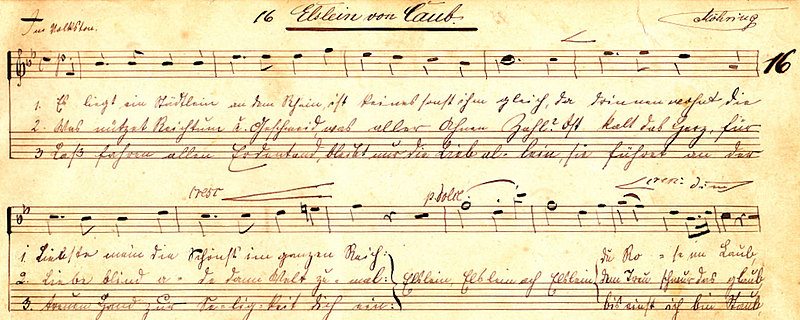 Im Volkston.
16 Elslein von Caub.
Möhring
16
1. Es liegt ein Städtlein an dem Rhein, ist keines sonst ihm gleich, da drinnen wohnt die
2. Was nützet Reichtum u. Geschmeid was aller Ahnen Zahl? Ist kalt das Herz, für
3. Laß fahren allen Erdentand, bleibt nur die Lieb al- lein, sie führet an der
cresc
p dolce
cresc: dim
1. Liebste mein die Schönst im ganzen Reich:
2. Liebe blind a- de dann Welt zu- mal:
3. treuen Hand zur Se- lig- keit dich ein:
Elslein, Elslein ach Elslein
du Ro- se im Laub,
dem Treu
das glaub
bis einst ich bin Staub,